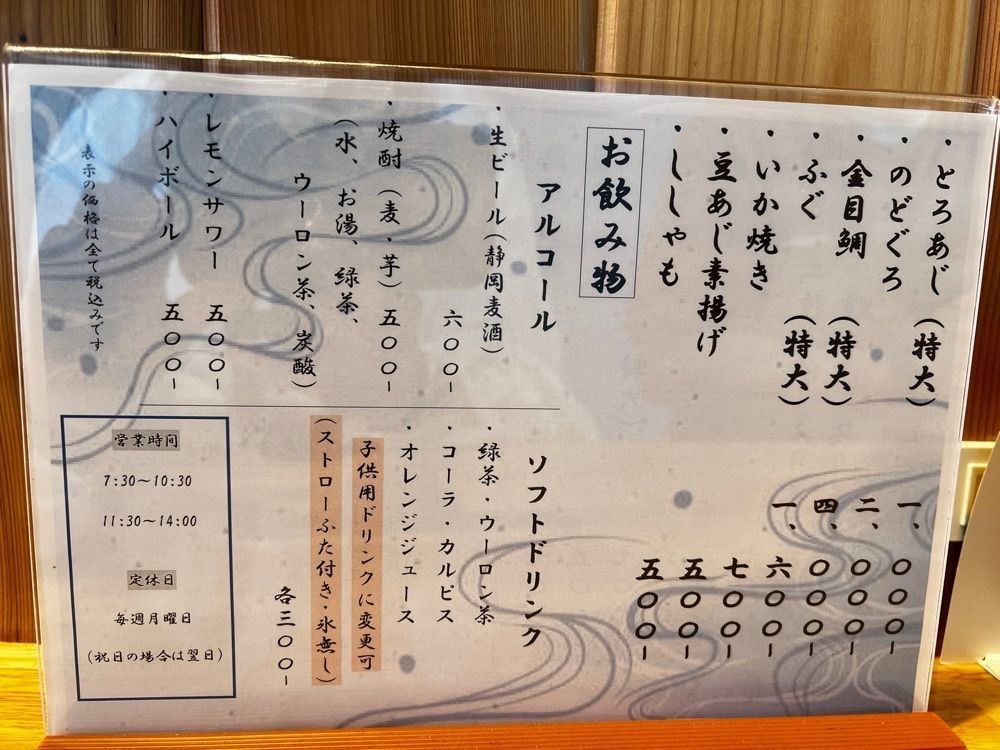 ・とろあじ（特大） 一、〇〇〇～
・のどぐろ 二、〇〇〇～
・金目鯛（特大） 四、〇〇〇～
・ふぐ（特大） 一、六〇〇～
・いか焼き 七〇〇～
・豆あじ素揚げ 五〇〇～
・ししゃも 五〇〇～
お飲み物
アルコール
・生ビール（静岡麦酒）
六〇〇～
・焼酎（麦・芋）五〇〇～
（水、お湯、緑茶、
ウーロン茶、炭酸）
・レモンサワー 五〇〇～
・ハイボール 五〇〇～
表示の価格は全て税込みです
ソフトドリンク
・緑茶・ウーロン茶
・コーラ・カルピス
・オレンジジュース
子供用ドリンクに変更可
（ストローふた付き・氷無し）
各三〇〇～
営業時間
7:30～10:30
11:30～14:00
定休日
毎週月曜日
（祝日の場合は翌日）